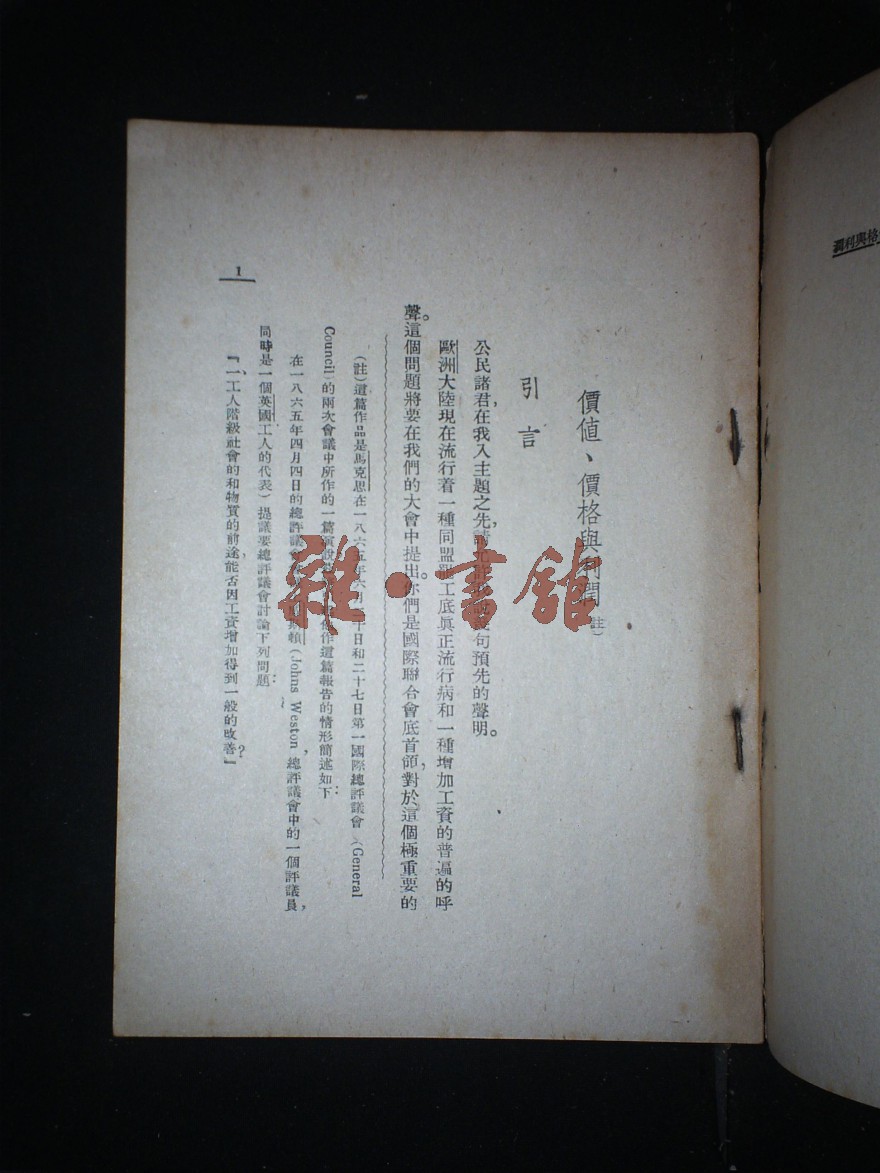 價値、價格與利潤(註)
引言
公民諸君在我入主題之先,請允許我說幾句預先的聲明。
歐洲大陸現在流行着一種同盟罷工底眞正流行病和一種增加工資的普遍的呼
聲。這個問題將要在我們的大會中提出。你們是國際聯合會底首領,對於這個極重要的
(註)這篇作品是馬克思在一八六五年六月二十日和二十七日第一國際總評議會(General
Council)的兩次會議中所作的一篇演說 作這篇報告的情形簡述如下:
在一八六五年四月四日的總評議會 頓(Johns Weston,總評議會中的一個評議員,
同時是一個英國工人的代表)提議要總評議會討論下列問題:
『一、工人階級社會的和物質的前途,能否因工資增加得到一般的改善?』
1
雜·書館